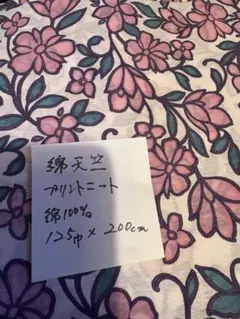 綿天竺
プリントニット
綿100%
125巾×200cm